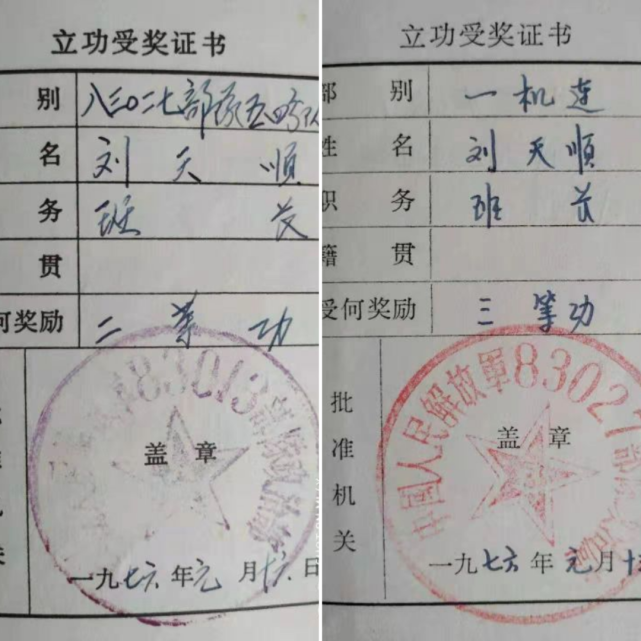 立功受奖证书
别 八三〇二七部队五
名 刘天顺
务 班长
贯
何奖励 二等功
83013部队
盖章
关
一九七六年元月十六日
立功受奖证书
部别 一机连
姓名 刘天順
职务 班长
籍贯
受何奖励 三等功
中国人民解放軍83027部队
批准机关
盖章
一九七六年元月十